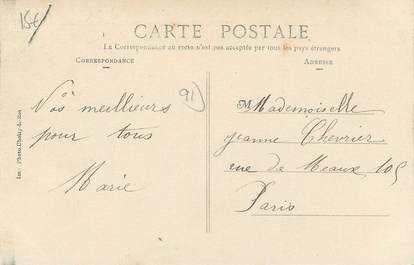 15€
CARTE POSTALE
La Correspondance au recto n'est pas acceptée par tous les pays étrangers
CORRESPONDANCE
ADRESSE
91
Vos meilleurs
pour tous
Marie
M Mademoiselle
jeanne Chevrier
rue de Meaux 105
Paris
Imp. Photo